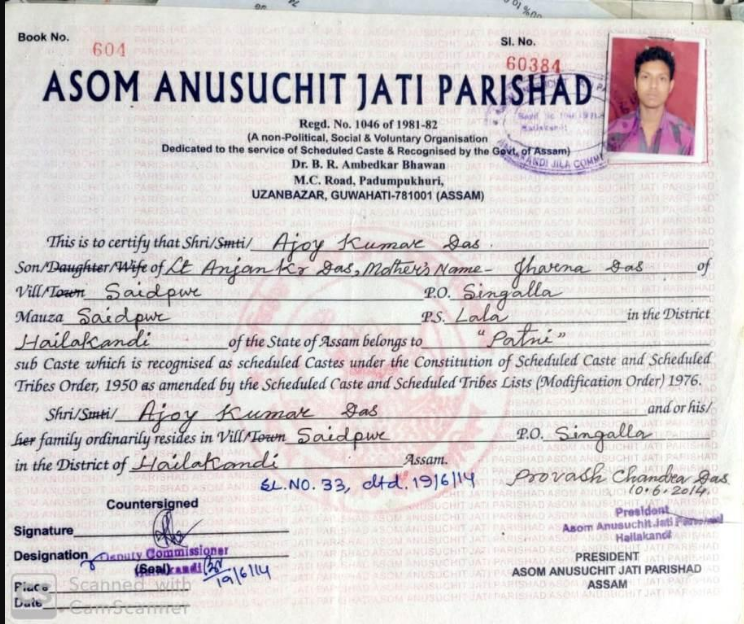 Book No.
604
Sl. No.
60384
ASOM ANUSUCHIT JATI PARISHAD
Regd. No. 1046 of 1981-82
(A non-Political, Social & Voluntary Organisation
Dedicated to the service of Scheduled Caste & Recognised by the Govt. of Assam)
Dr. B. R. Ambedkar Bhawan
M.C. Road, Padumpukhuri,
UZANBAZAR, GUWAHATI-781001 (ASSAM)
This is to certify that Shri/Smti/ Ajoy Kumar Das
Son/Daughter/Wife of Lt Anjan Kr Das, Mother's Name - Jharna Das of
Vill/Town Saidpur P.O. Singalla
Mauza Saidpur P.S. Lala in the District
Hailakandi of the State of Assam belongs to "Patni"
sub Caste which is recognised as scheduled Castes under the Constitution of Scheduled Caste and Scheduled
Tribes Order, 1950 as amended by the Scheduled Caste and Scheduled Tribes Lists (Modification Order) 1976.
Shri/Smti/ Ajoy Kumar Das and or his/
her family ordinarily resides in Vill/Town Saidpur P.O. Singalla
in the District of Hailakandi Assam.
SL.NO. 33, dtd. 19/6/14
Provash Chandra Das
10.6.2014
Countersigned
Signature
Designation Deputy Commissioner
Hailakandi
(Seal)
19/6/14
Place
Date
President
Asom Anusuchit Jati Parishad
Hailakandi
PRESIDENT
ASOM ANUSUCHIT JATI PARISHAD
ASSAM
CS Scanned with
CamScanner